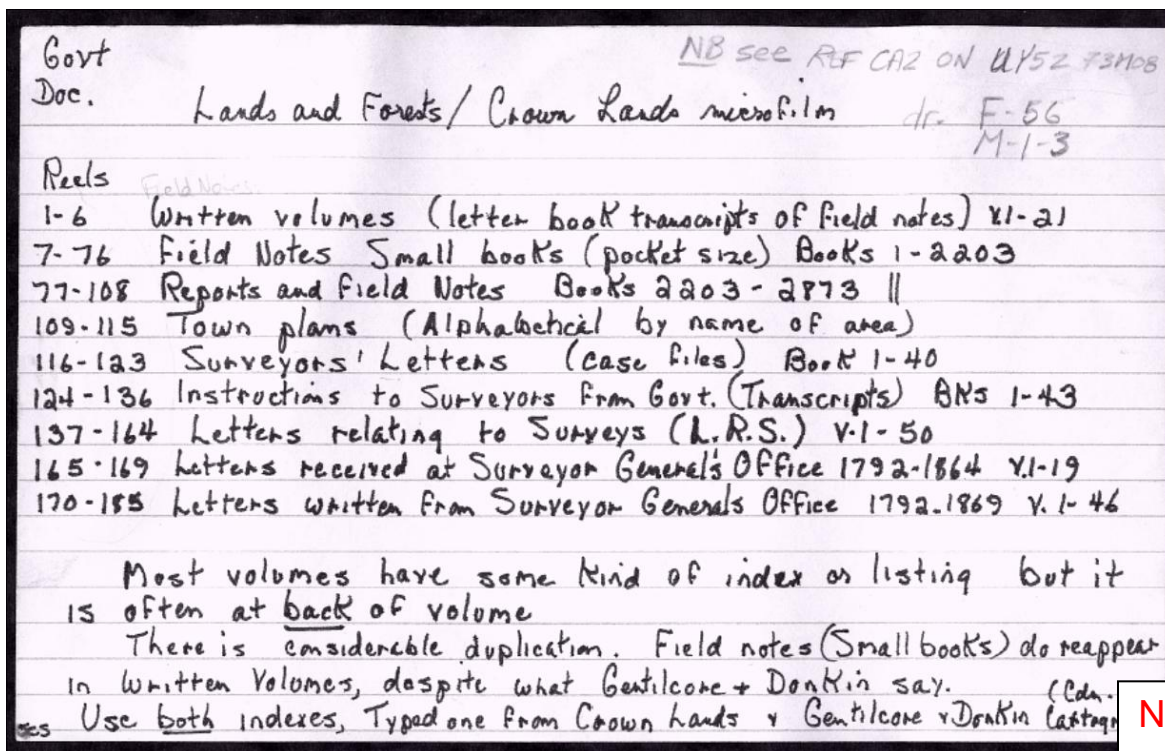 Govt
NB see REF CA2 ON
Doc.
Lands and Forests / Crown Lands microfilm
dr. F-56
M-1-3
Reels
Field Notes
1-6 Written volumes (letter book transcripts of field notes) v.1-21
7-76 Field Notes Small books (pocket size) Books 1-2203
77-108 Reports and Field Notes Books 2203-2873 ||
109-115 Town plans (Alphabetical by name of area)
116-123 Surveyors' Letters (case files) Book 1-40
124-136 Instructions to Surveyors from Govt. (Transcripts) BKs 1-43
137-164 Letters relating to Surveys (L.R.S.) V.1-50
165-169 Letters received at Surveyor General's Office 1792-1864 V.1-19
170-185 Letters written from Surveyor Generals Office 1792-1869 V. 1-46
Most volumes have some kind of index or listing but it
is often at back of volume
There is considerable duplication. Field notes (Small books) do reappear
in Written Volumes, despite what Gentilcore + Donkin say.
(Cdn.
Use both indexes, Typed one from Crown Lands + Gentilcore + Donkin
N